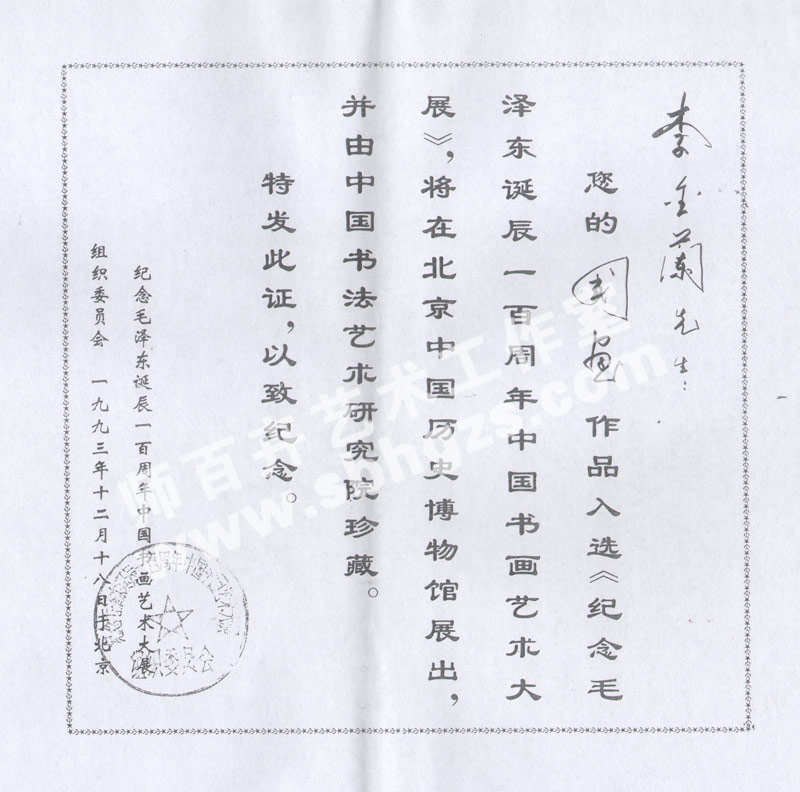 李金兰先生：
您的 国画 作品入选《纪念毛
泽东诞辰一百周年中国书画艺术大
展》，将在北京中国历史博物馆展出，
并由中国书法艺术研究院珍藏。
特发此证，以致纪念。
纪念毛泽东诞辰一百周年中国书画艺术大展
组织委员会 一九九三年十二月十八日于北京
组织委员会
师百卉艺术工作室
www.sbhgzs.com